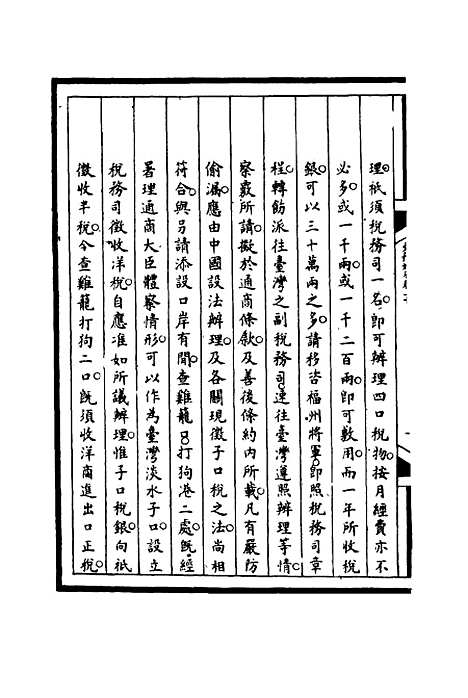 理祇須稅務司一名。即可辦理四口稅物。按月經費亦不
必多。或一千兩。或一千二百兩。即可敷用。而一年所收稅
銀。可以三十萬兩之多。請移咨福州將軍。即照稅務司章
程。轉飭派往臺灣之副稅務司。速往臺灣遵照辦理等情。
察覈所請。擬於通商條欵。及善後條約內所載。凡有嚴防
偷漏。應由中國設法辦理。及各關現徵子口稅之法。尚相
符合。與另請添設口岸有閒。查雞籠口。打狗港二處。旣經
署理通商大臣體察情形。可以作為臺灣淡水子口。設立
稅務司徵收洋稅。自應准如所議辦理。惟子口稅銀。向祇
徵收半稅。今查雞籠打狗二口。旣須收洋商進出口正稅。